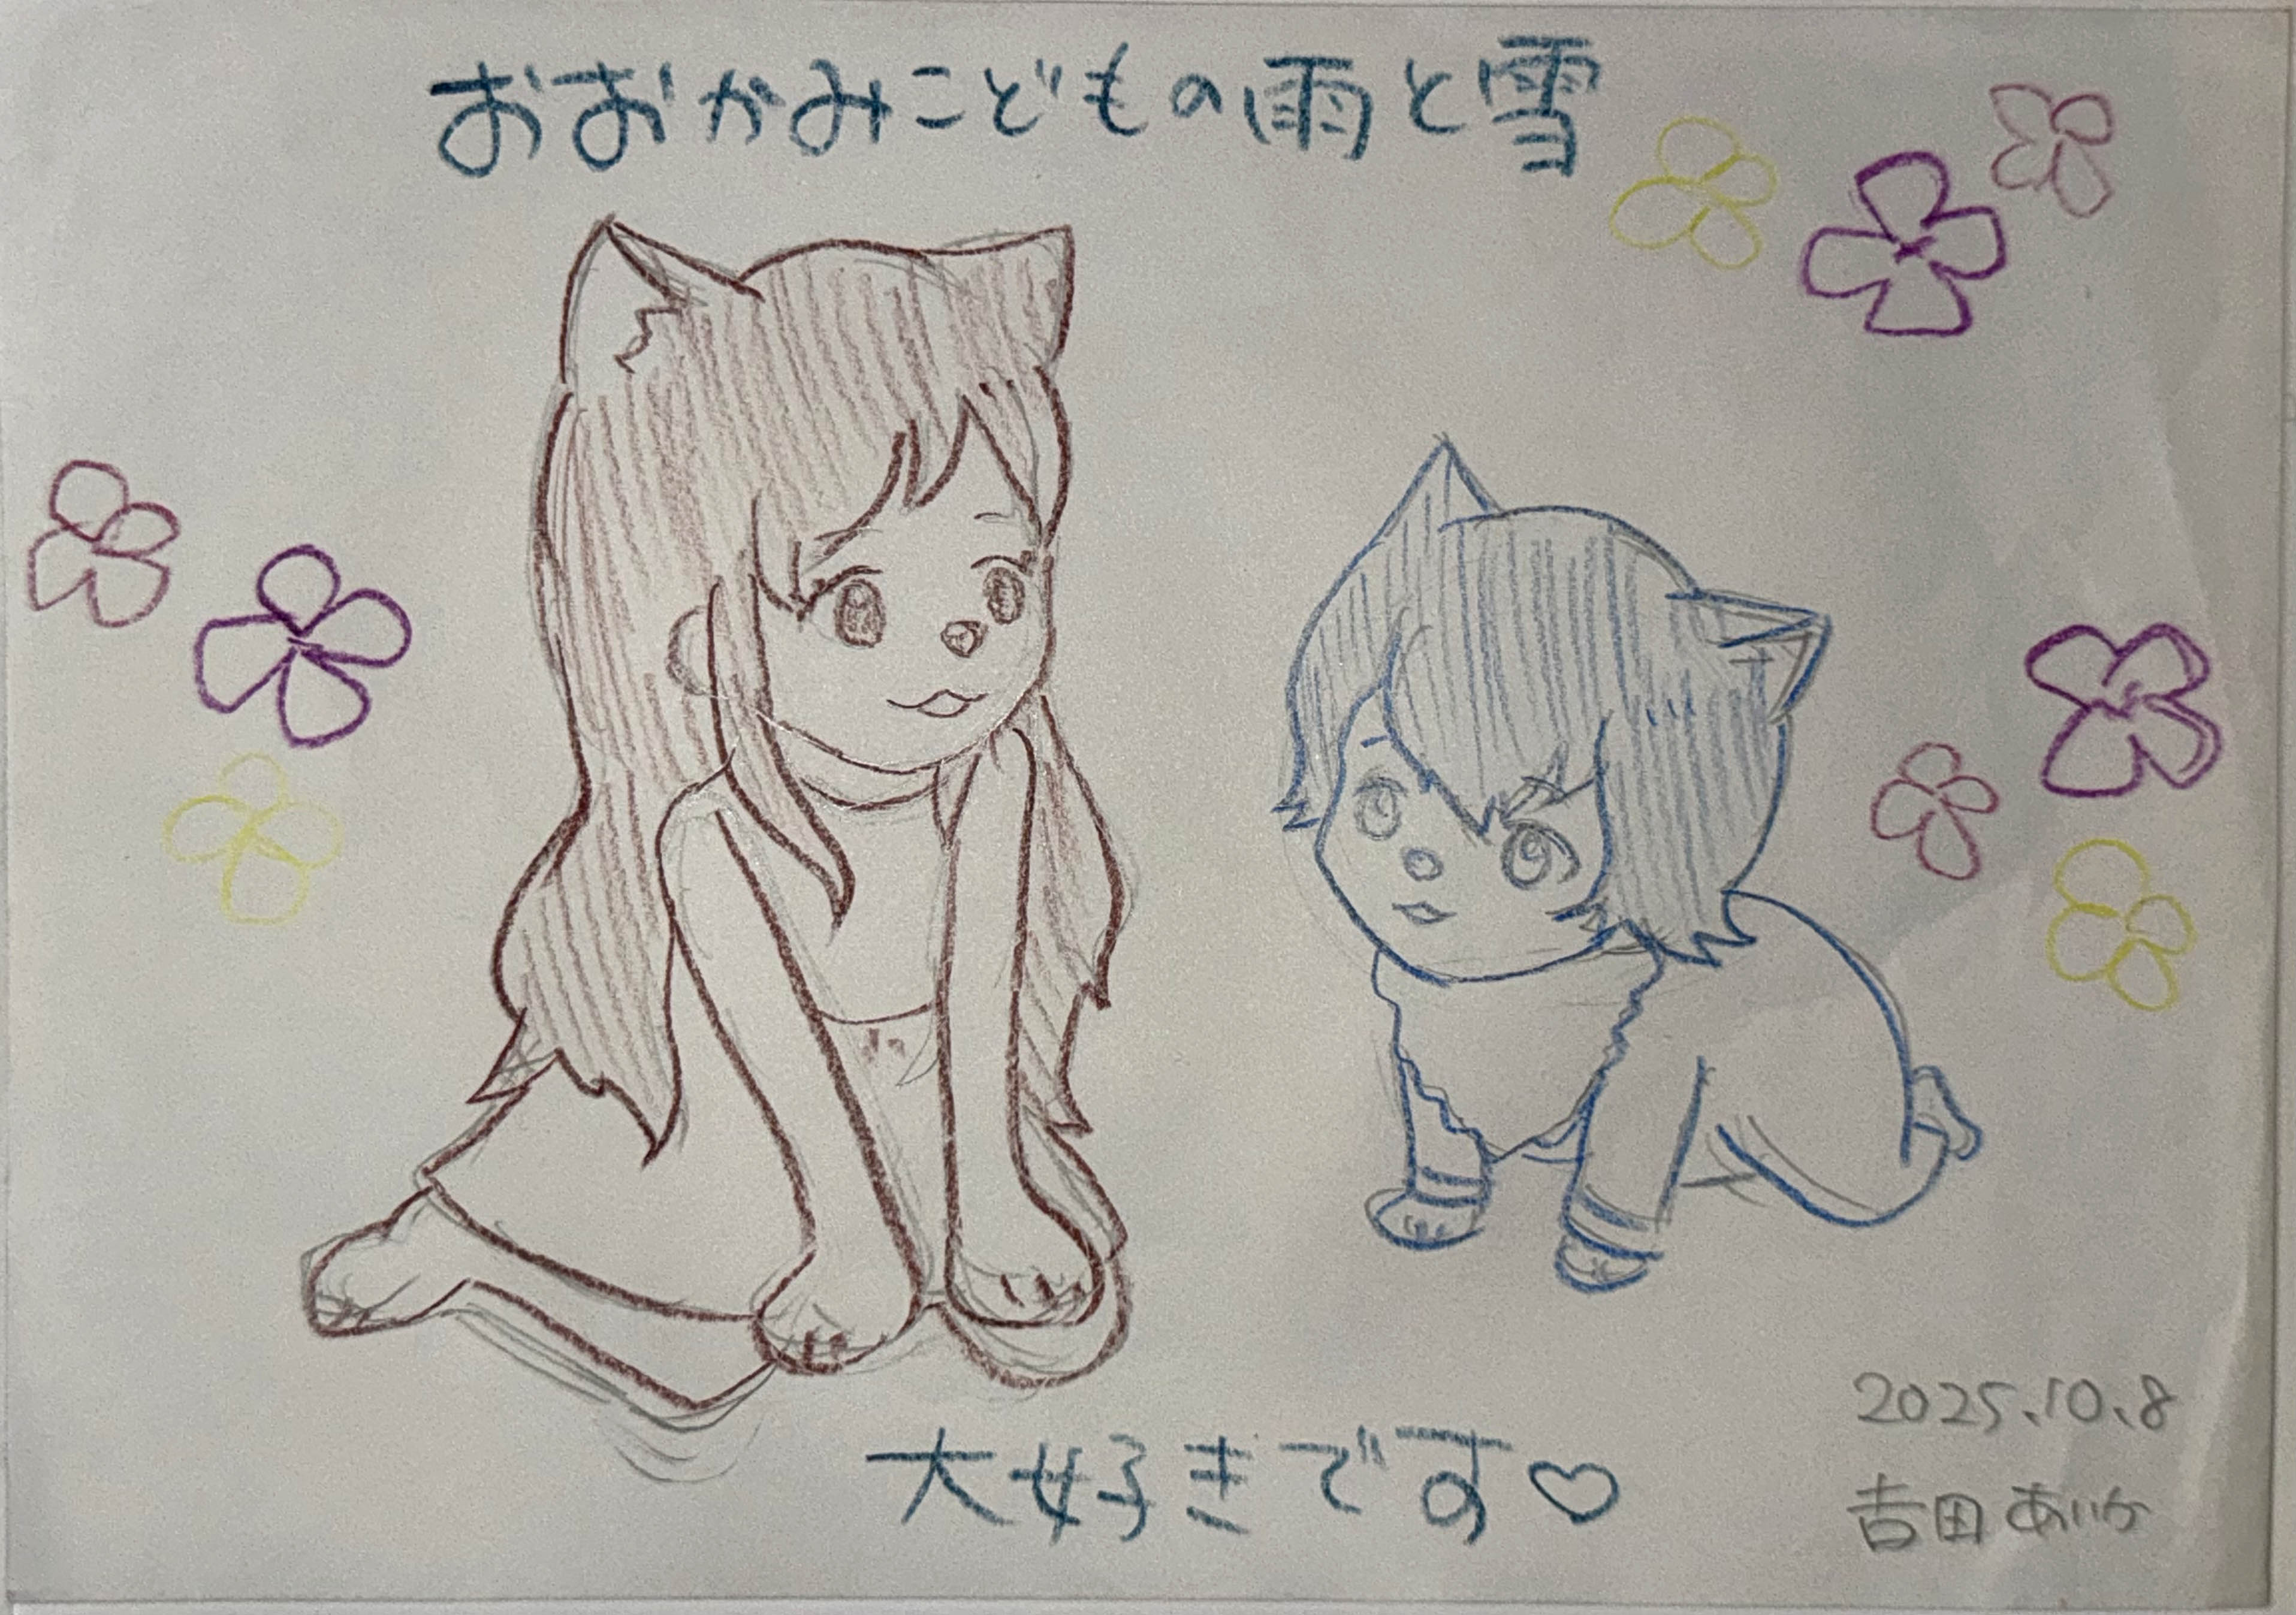 おおかみこどもの雨と雪
大好きです♡
2025.10.8
吉田あいか